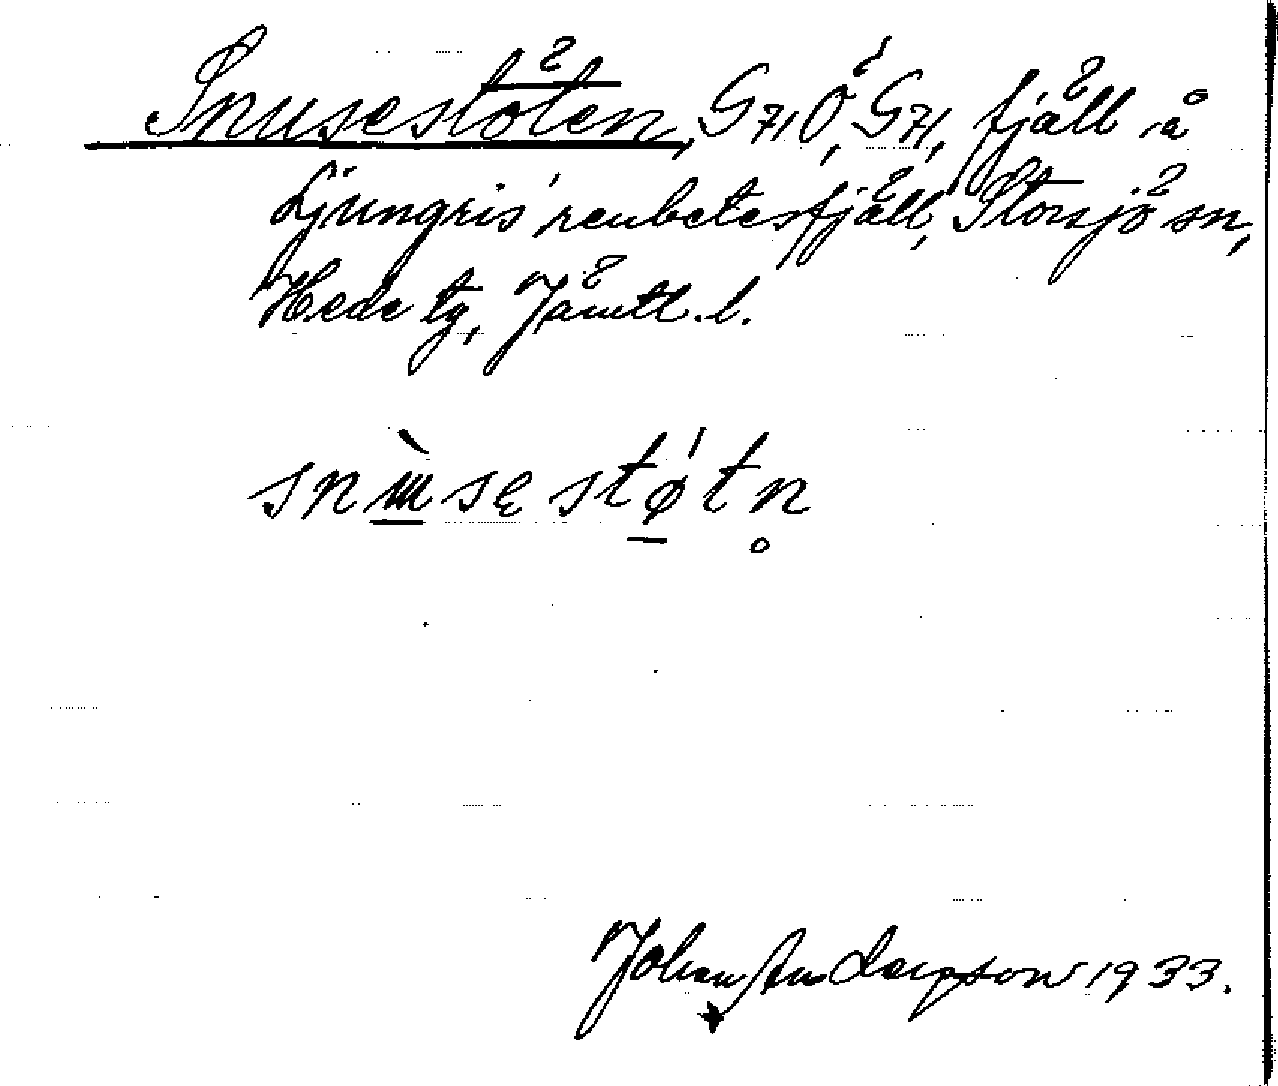 Snusestöten, G71Ö, G71, fjäll å
Ljungris' renbetesfjäll, Storsjö sn,
Hede tg, Jämtl. l.
snɯ̀sę støʹtn̥
Johan Andersson 1933.